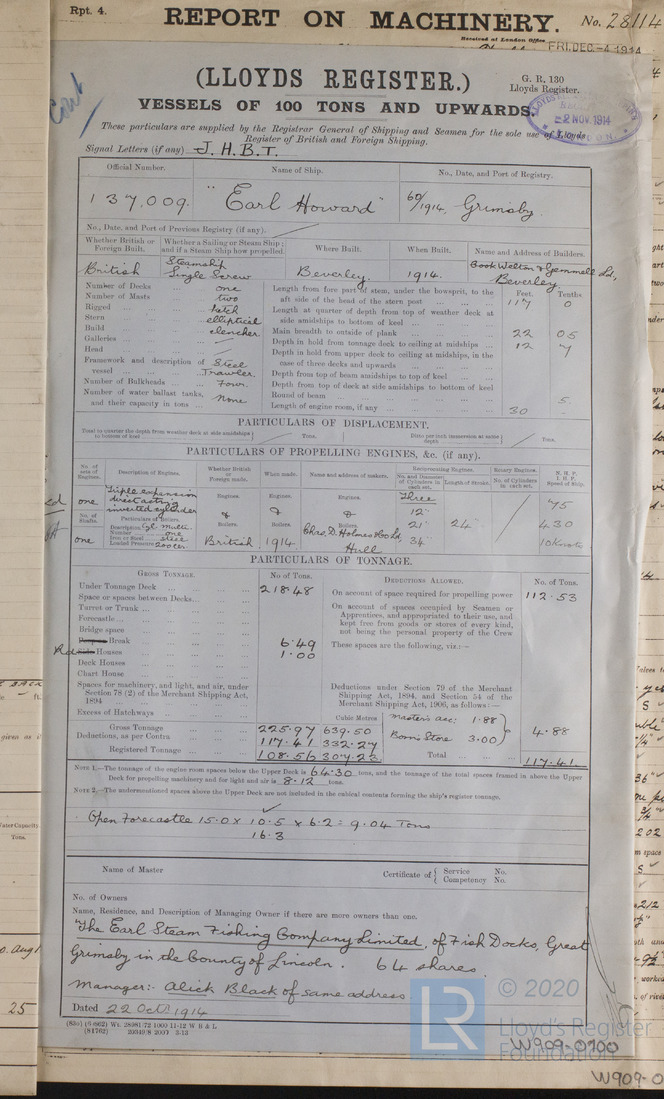 Rpt. 4.
REPORT ON MACHINERY.
No. 28114
Received at London Office
FRI. DEC. -4 1914
(LLOYDS REGISTER.)
G. R. 130
Lloyds Register.
VESSELS OF 100 TONS AND UPWARDS.
2 NOV 1914
These particulars are supplied by the Registrar General of Shipping and Seamen for the sole use of Lloyds
Register of British and Foreign Shipping.
Signal Letters (if any) J. H. B. T.
Official Number. Name of Ship. No., Date, and Port of Registry.
137,009. "Earl Howard" 60/1914, Grimsby.
No., Date, and Port of Previous Registry (if any).
Whether British or Foreign Built. Whether a Sailing or Steam Ship; and if a Steam Ship how propelled. Where Built. When Built. Name and Address of Builders.
British Steamship Single Screw Beverley. 1914. Cook Welton & Gemmell Ld, Beverley
Number of Decks one
Number of Masts two
Rigged ketch
Stern elliptical
Build clencher
Galleries
Head
Framework and description of vessel Steel Trawler.
Number of Bulkheads Four.
Number of water ballast tanks, and their capacity in tons None
Feet. Tenths.
Length from fore part of stem, under the bowsprit, to the aft side of the head of the stern post 117 0
Length at quarter of depth from top of weather deck at side amidships to bottom of keel
Main breadth to outside of plank 22 05
Depth in hold from tonnage deck to ceiling at midships 12 7
Depth in hold from upper deck to ceiling at midships, in the case of three decks and upwards
Depth from top of beam amidships to top of keel
Depth from top of deck at side amidships to bottom of keel
Round of beam 5
Length of engine room, if any 30
PARTICULARS OF DISPLACEMENT.
Total to quarter the depth from weather deck at side amidships to bottom of keel Tons. Ditto per inch immersion at same depth Tons.
PARTICULARS OF PROPELLING ENGINES, &c. (if any).
No. of sets of Engines. Description of Engines. Whether British or Foreign made. When made. Name and address of makers. Reciprocating Engines. Rotary Engines. N. H. P. I. H. P. Speed of Ship.
No. and Diameter of Cylinders in each set. Length of Stroke. No. of Cylinders in each set.
one Triple expansion direct acting inverted cylinder Engines. Engines. Engines. Three 12" 75
No. of Shafts. Particulars of Boilers. & & Boilers. Boilers. Boilers. 21" 24" 430
Description Cyl. Multr.
Number one
Iron or Steel Steel
Loaded Pressure 200 lbs.
one British 1914 Chas. D. Holmes & Co Ld, Hull 34" 10 Knots
PARTICULARS OF TONNAGE.
GROSS TONNAGE. No of Tons. DEDUCTIONS ALLOWED. No. of Tons.
Under Tonnage Deck 218.48
Space or spaces between Decks
Turret or Trunk
Forecastle
Bridge space
Break 6.49
Houses 1.00
Deck Houses
Chart House
Spaces for machinery, and light, and air, under Section 78 (2) of the Merchant Shipping Act, 1894
Excess of Hatchways
On account of space required for propelling power 112.53
On account of spaces occupied by Seamen or Apprentices, and appropriated to their use, and kept free from goods or stores of every kind, not being the personal property of the Crew
These spaces are the following, viz:—
Deductions under Section 79 of the Merchant Shipping Act, 1894, and Section 54 of the Merchant Shipping Act, 1906, as follows:—
Cubic Metres
Master's acc: 1.88
Bosn's Store 3.00 4.88
Gross Tonnage 225.97 639.50
Deductions, as per Contra 117.41 332.27
Registered Tonnage 108.56 307.23
Total 117.41
NOTE 1.—The tonnage of the engine room spaces below the Upper Deck is 64.30 tons, and the tonnage of the total spaces framed in above the Upper
Deck for propelling machinery and for light and air is 8.12 tons.
NOTE 2.—The undermentioned spaces above the Upper Deck are not included in the cubical contents forming the ship's register tonnage.
Open Forecastle 15.0 x 10.5 x 6.2 = 9.04 Tons
16.3
Name of Master
Certificate of Service No. Competency No.
No. of Owners
Name, Residence, and Description of Managing Owner if there are more owners than one.
The Earl Steam Fishing Company Limited, of Fish Docks, Great
Grimsby in the County of Lincoln. 64 shares
Manager:- Alick Black of same address
Dated 22 Octr 1914
LR
© 2020
Lloyd's Register
Foundation
W909-0700
25